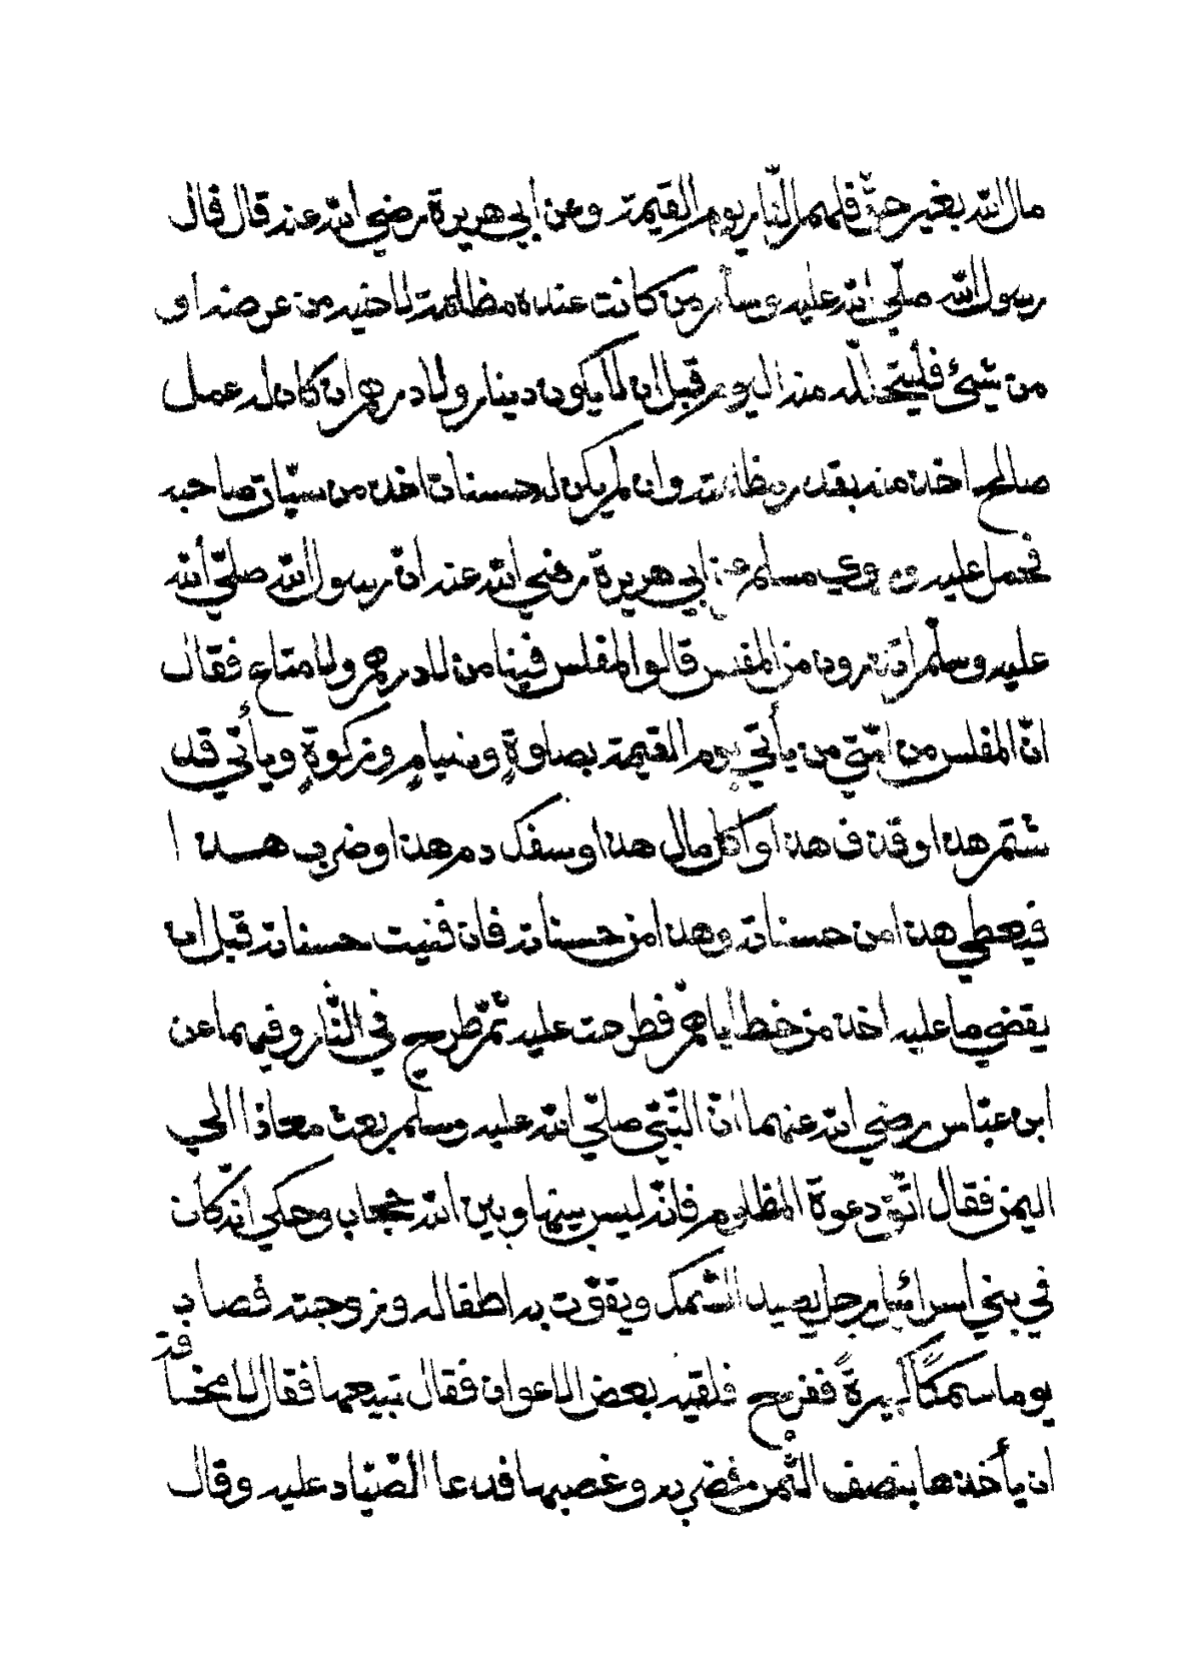 مال الله بغير حقّ فلهم النّار يوم القيمة وعن ابي هريرة رضي الله عنه قال قال
رسول الله صلّي الله عليه وسلم من كانت عنده مظالمة لاخيه من عرضه او
من شيئ فليتحلّله منه اليوم قبل ان لا يكون دينار ولا درهم ان كان له عمل
صالح اخذ منه بقدر مظلمته وان لم يكن له حسنات اخذ من سيّات صاحبه
فحمل عليه وروي مسلم عن ابي هريرة رضي الله عنه انّ رسول الله صلّي الله
عليه وسلّم اتدرون من المفلس قالوا المفلس فينا من لا درهم ولا متاع فقال
انّ المفلس من امّتي من يأتي يوم القيمة بصلوةٍ وصيامٍ وزكوةٍ ويأتي قد
شتم هذا وقذف هذا واكل مال هذا وسفك دم هذا وضرب هذا
فيعطي هذا من حسناته وهذا من حسناته فان فنيت حسناته قبل ان
يقضي ما عليه اخذ من خطاياهم فطرحت عليه ثمّ طرح في النّار وفيهما عن
ابن عبّاس رضي الله عنهما انّ النّبيّ صلّي الله عليه وسلّم بعث معاذا الي
اليمن فقال اتّق دعوة المظلوم فانّه ليس بينها وبين الله حجاب وحكي انّه كان
في بني اسرائيل رجل يصيد السّمك ويقوّت به اطفاله وزوجته فصاد
يوما سمكةً كبيرةً ففرح فلقيه بعض الاعوان فقال تبيعها فقال لا فخا قة
ان يأخذها بنصف الثّمن فضربه وغصبها فدعا الصّيّاد عليه وقال